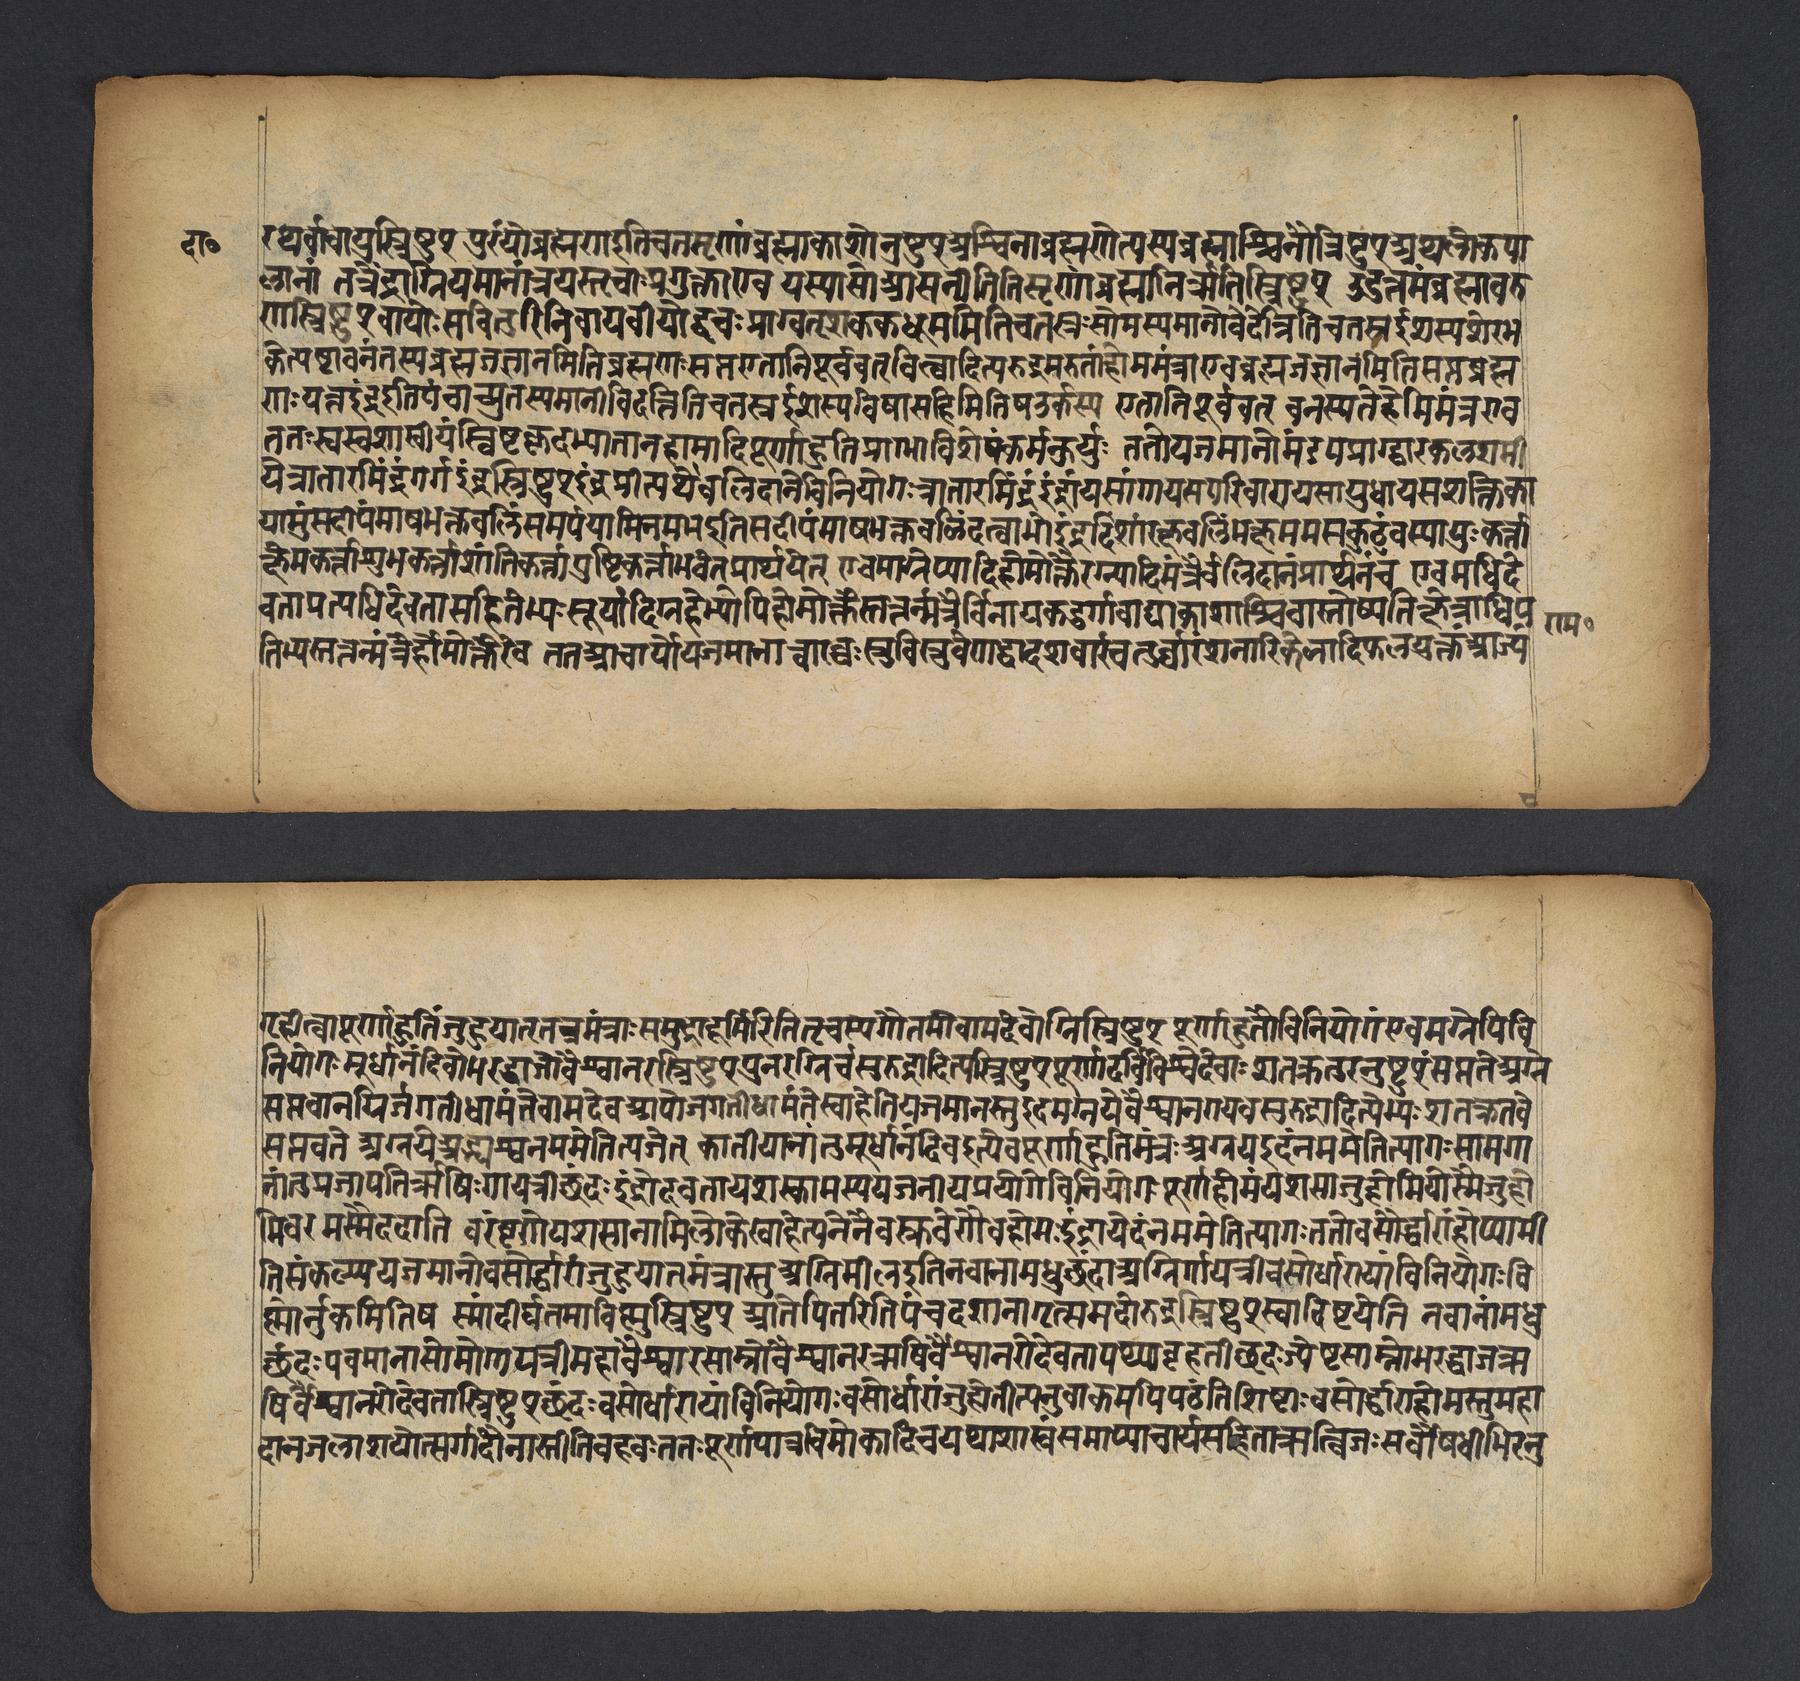 दा०
रथर्वावायुस्त्रिष्टुप् पुरंयोब्रह्मगाइतिचतसृणांब्रह्माकाशोनुष्टुप्अश्विनाब्रह्मणेत्यस्यब्रह्माश्विनौत्रिष्टुप्अथलोकपा
लानां तत्रेंद्राग्नियमानांत्रयस्तृचाःप्रागुक्ताएव यस्यासाआसनीतितिसृणांब्रह्मानिर्ऋतिस्त्रिष्टुप् उदुत्तमंब्रह्मावरु
णस्त्रिष्टुप्वायोःसवितुरिनिवायवीयोद्वृचःप्राग्वत्शकधूममितिचतस्रःसोमस्यमानोविदन्नितिचतस्रईशस्यशेरभ
केत्यष्टावनंतस्यब्रह्मजज्ञानमितिब्रह्मणःसप्तएतानिपूर्ववत्विश्वादित्यरुद्रमरुतांहोममंत्राएवब्रह्मजज्ञानमितिसप्तब्रह्म
णःयन्नइंद्रइतिपंचाच्युतस्यमानोविदन्नितिचतस्रईशस्यविषासहिमितिषडर्कस्य एतातिपूर्ववत् वनस्पतेर्होममंत्रएव
ततःस्वस्वशाखीयंस्विष्टकृदभ्यातानहोमादिपूर्णाहुतिप्राग्भाविशेषंकर्मकुर्युः ततोयजमानोमंडपप्राग्द्वारकलशसमी
पेत्रातारमिंद्रंगर्गइंद्रस्त्रिष्टुप्इंद्रप्रीत्यर्थेबलिदानेविनियोगःत्रातारमिंद्रंइंद्रायसांगायसपरिवारायसायुधायसशक्तिका
यामुंसदीपंमाषभक्तबलिंसमर्पयामिनममइतिसदीपंमाषभक्तबलिंदत्वाभोइंद्रदिशंरक्षबलिंभक्षममसकुटुंबस्यायुःकर्त्ता
क्षेमकर्त्ताशुभकर्त्ताशांतिकर्त्तापुष्टिकर्त्ताभवेतिप्रार्थयेत् एवमाग्नेय्यादिहोमोक्तैरग्न्यादिमंत्रैर्बलिदानंप्रार्थनंच एवमधिदे
वताप्रत्यधिदेवतासहितेभ्यःसूर्यादिग्रहेभ्योपिहोमोक्तैस्तत्तन्मंत्रैर्विनायकदुर्गावाय्वाकाशाश्विवास्तोष्पतिक्षेत्राधिप
तिभ्यस्तत्तन्मंत्रैर्होमोक्तैरेव ततआचार्योयजमानान्वारब्धःस्रुविस्रुवेणद्वादशवारंचतुर्वारंशनारिकेलादिफलयुक्तंआज्यं
राम०
गृहीत्वापूर्णाहुतिंजुहुयात्तत्रमंत्राःसमुद्रादूर्मिरितितृचस्यगौतमीवामदेवोग्निस्त्रिष्टुप् पूर्णाहुतौविनियोगंएवमग्नेपिवि
नियोगःमूर्धानंदिवोभरद्वाजोवैश्वानरस्त्रिष्टुप्पुनरग्निर्वसुरुद्रादित्यस्त्रिष्टुप्पूर्णादर्विविश्वेदेवाःशतक्रतुरनुष्टुप्सप्ततेअग्ने
सप्तवानग्निर्जगतीधामंतेवामदेवआपोजगतीधामंतेस्वाहेतियजमानस्तुइदमग्नयेवैश्वानरायवसुरुद्रादित्येभ्यःशतक्रतवे
सप्तवते अग्नयेअद्भ्यश्चनममेतित्यजेत् कातीयानांतुमूर्धानंदिवइत्येवपूर्णाहुतिमंत्रःअग्नयइदंनममेतित्यागःसामगा
नांतुप्रजापतिर्ऋषिःगायत्रीछंदःइंद्रोदेवतायशस्कामस्ययजनीयप्रयोगेविनियोगःपूर्णहोमंयशसाजुहोमियोस्मैजुहो
मिवरमस्मैददाति वरंवृणोयशसाभामिलोकेस्वाहेत्यनेनैवस्रुवेणैवहोमःइंद्रायेदंनममेतित्यागःततोवसोर्द्धारांहोष्यामी
तिसंकल्प्ययजमानोवसोर्द्धारांजुहुयात्तमंत्रास्तुअग्निमीलइतिनवानामधुछंदाअग्निर्गायत्रीवसोर्धारायांविनियोगःवि
ष्णोर्नुकमितिष स्मांदीर्घतमाविष्णुस्त्रिष्टुप् आतेपितरितिपंचदशानांगृत्समदोरुद्रस्त्रिष्टुप्स्वादिष्टयेति नवानांमधु
छंदःपवमानासोमोगायत्रीमहावैश्वारसाम्नोवैश्वानरऋषिर्वैश्वानरोदेवतापथ्याबृहतीछंदःज्येष्टसाम्नोभरद्वाजऋ
षिर्वैश्वानरोदेवतास्त्रिष्टुप्छंदःवसोर्धारायांविनियोगःवसोर्धारांजुहोतीत्यनुवाकमपिपठंतिशिष्टाःवसोर्द्धाराहोमस्तुमहा
दानजलाशयोत्सर्गादौनास्तीतिबहवःततःपूर्णपात्रविमोकादिचयथाशास्त्रंसमाप्याचार्यसहिताऋत्विजःसर्वौषधीभिरनु